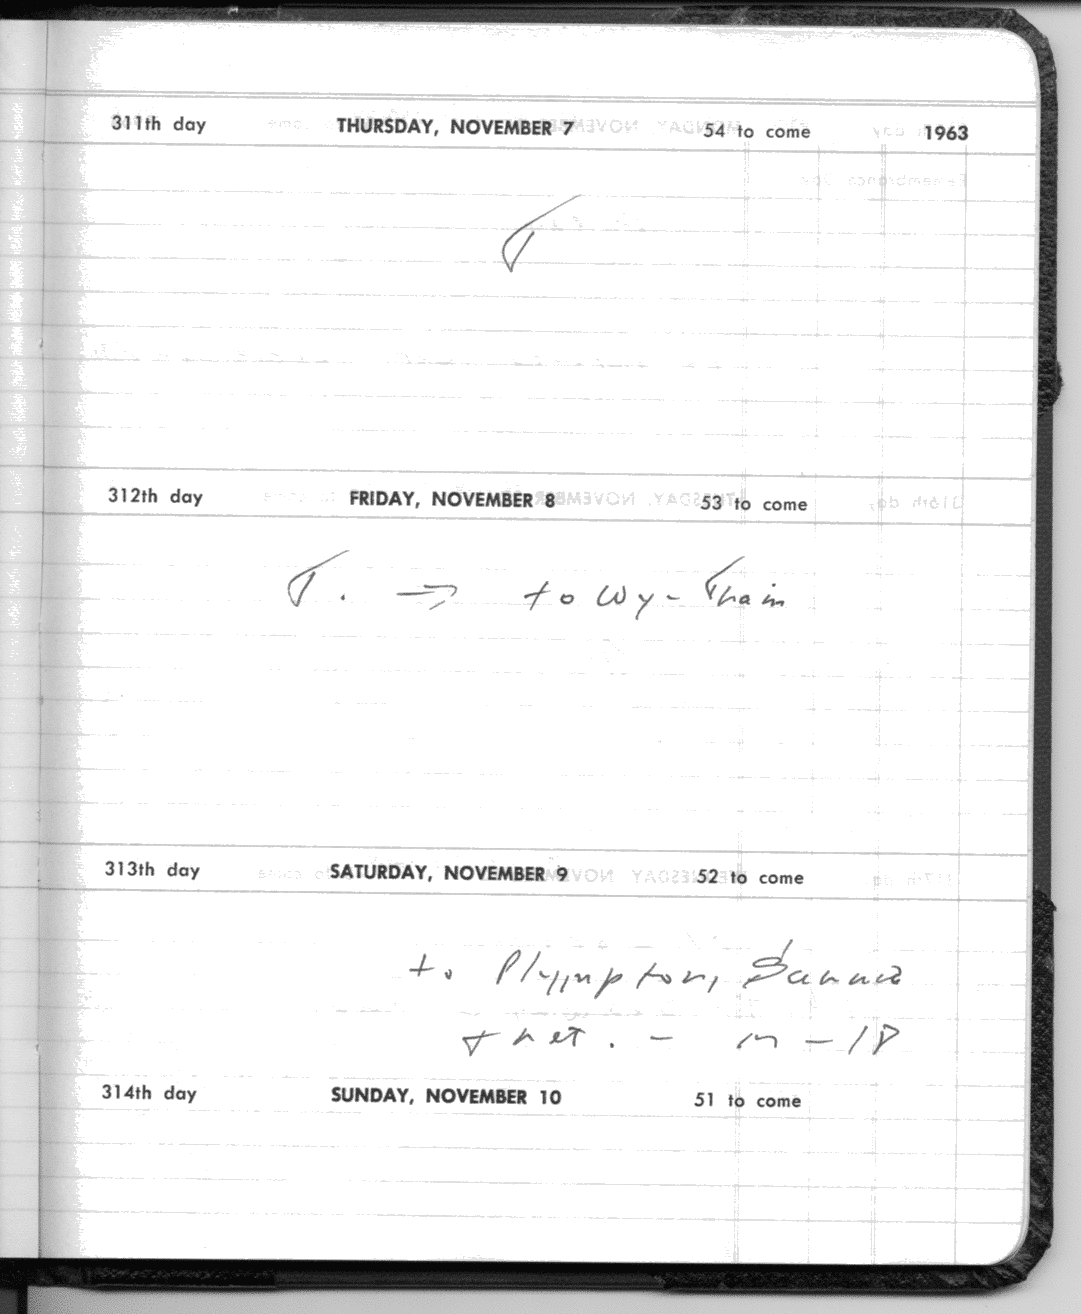 311th day THURSDAY, NOVEMBER 7 54 to come 1963
T
312th day FRIDAY, NOVEMBER 8 53 to come
T. → to Wy - Train
313th day SATURDAY, NOVEMBER 9 52 to come
to Plympton, Sarnia
+ ret. - m - 18
314th day SUNDAY, NOVEMBER 10 51 to come